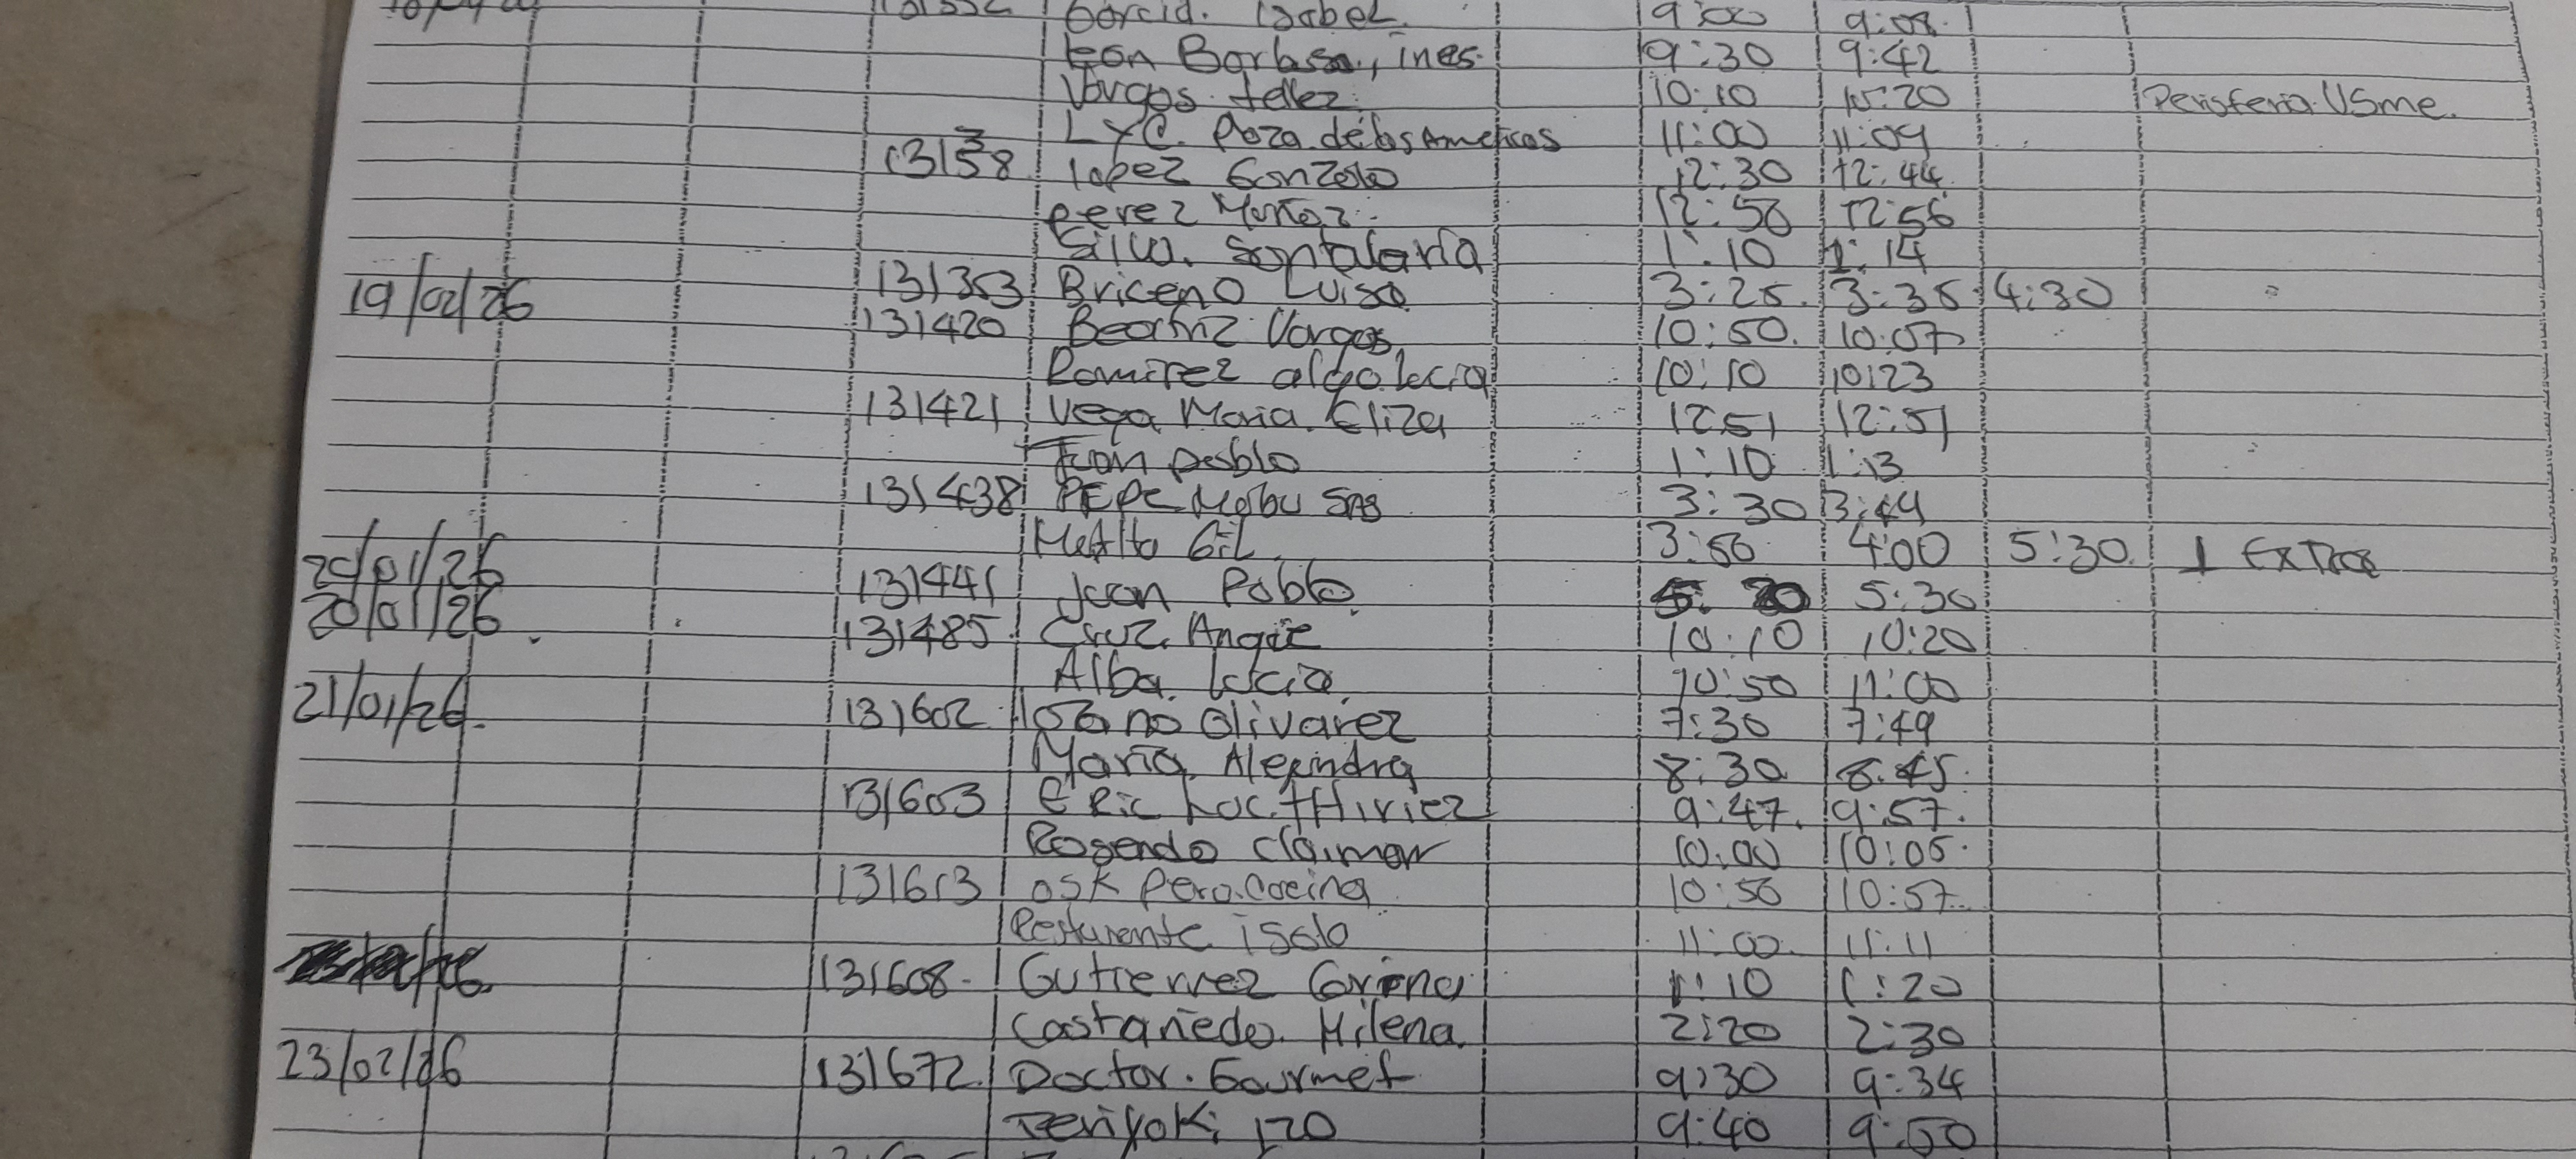 Garcia. Isabel. 9:00 9:08.
Leon Barbosa, ines. 9:30 9:42
Vargas tellez. 10:10 10:20 Perisferia Usme.
LYC. Plaza de las Americas 11:00 11:09
Lopez Gonzalo 12:30 12:44
perez Muñoz. 12:50 12:56
Silva. Santalaria 1:10 1:14
19/02/26 131353 Briceño Luisa 3:25. 3:35 4:30
131420 Beatriz Vargas 10:50. 10:07
Ramirez alga lucia 10:10 10:23
131421 Vega Maria. Eliza 12:51 12:51
Juan pablo 1:10 1:13
131438 PEPE Malbu SAS 3:30 3:49
Gil 3:50 4:00 5:30. 1 Extra
20/01/26 131441 Juan Pablo. 5:30
20/01/26 131485. Cruz. Angie 10:10 10:20
Alba. lucia. 10:50 11:00
21/01/26. 131602 Lozano Olivarez 7:30 7:49
Maria. Alejandra 8:30 8:45.
131603 Eric Luc. tthiriez 9:47. 9:57.
Rosendo Claimar 10:00 10:05.
131613 OSK Peru. Cocina 10:50 10:57.
Resturante isolo 11:00. 11:11
131608. Gutierrez 1:10 1:20
Castañeda. Milena. 2:20 2:30
23/02/26 131672. Doctor. Gourmet 9:30 9:34
Teriyaki 120 9:40 9:50